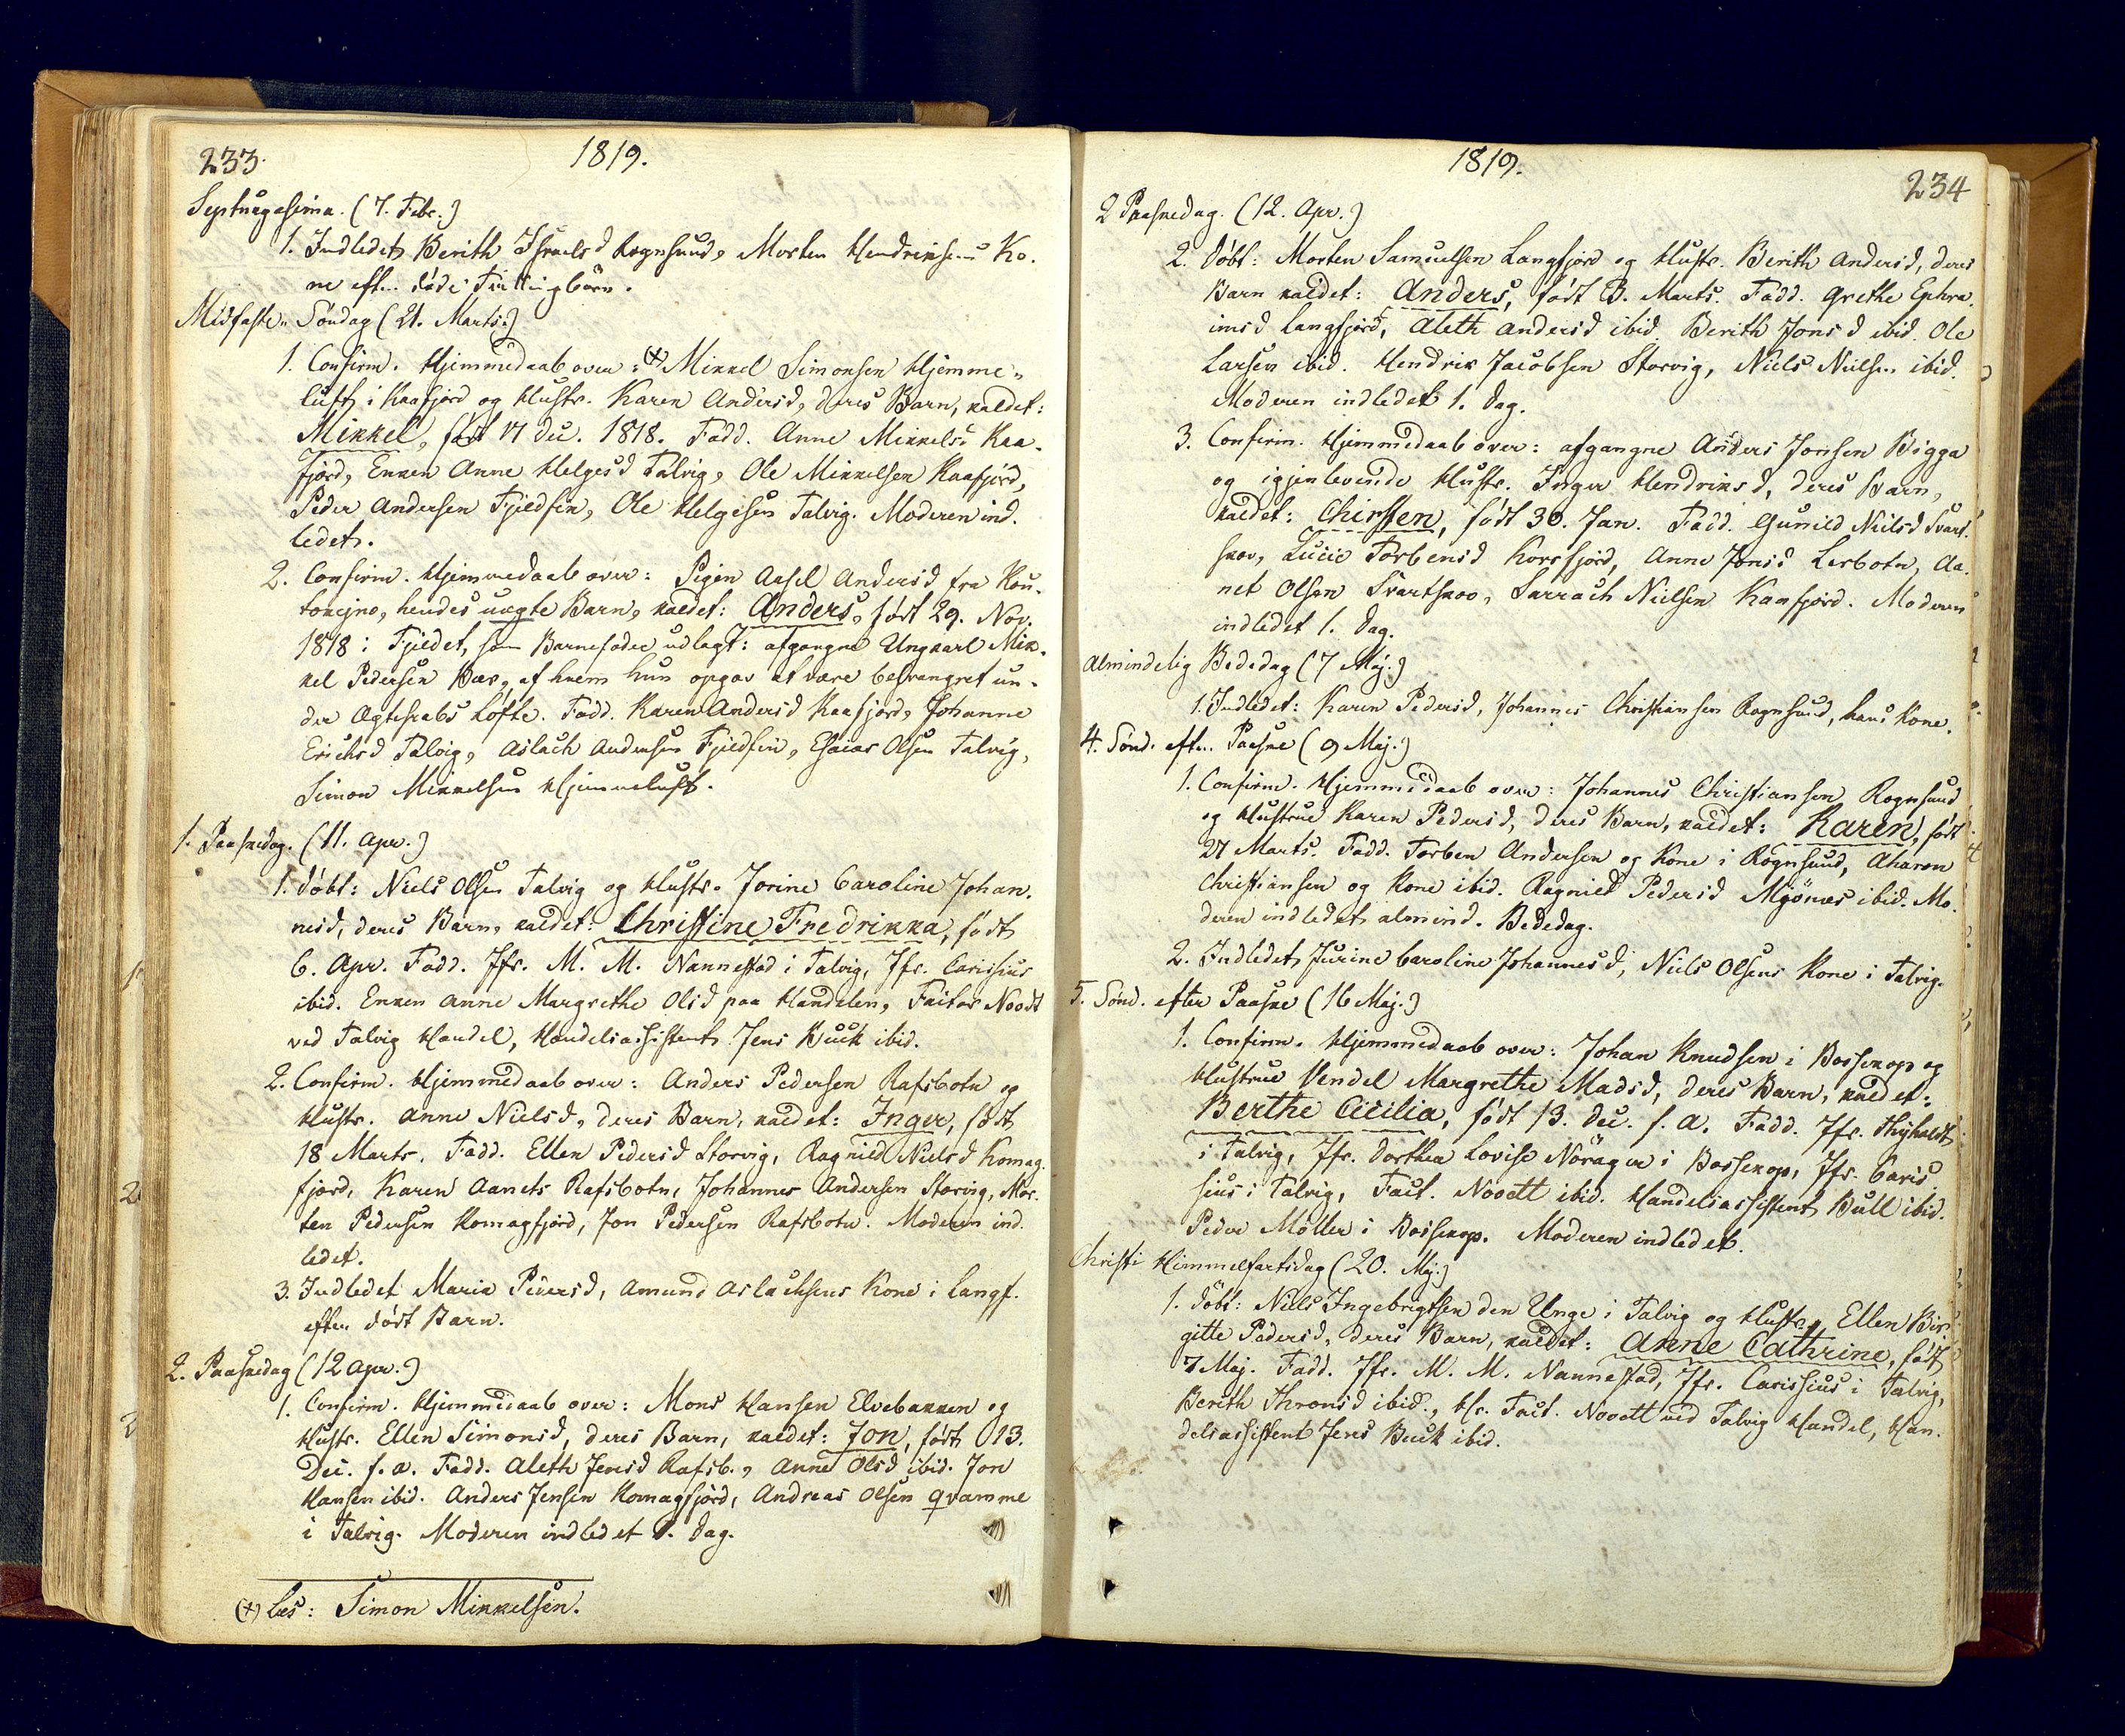 233.
1819.
Septuagesima. (7. Febr.)
1. Indledet Berith Israelsd Rognsund, Morten Hendriksens Ko-
ne efter døde Tvillingbørn.
Midfaste-Søndag (21. Marts.)
1. Confirm. Hjemmedaab over: (+) Mikkel Simonsen Hjemme-
luft i Kaafjord og Hustr. Karen Andersd, deres Barn, kaldet:
Mikkel, født 17 Dec. 1818. Fadd. Anne Mikkelsd Kaa-
fjord, Enken Anne Helgesd Talvig, Ole Mikkelsen Kaafjord,
Peder Andersen Fjeldfin, Ole Helgesen Talvig. Moderen ind-
ledet.
2. Confirm. Hjemmedaab over: Pigen Aasel Andersd fra Kou-
tokejno, hendes uægte Barn, kaldet: Anders, født 29. Nov.
1818 i Fjeldet, som Barnefader udlagt: afgangne Ungkarl Mik-
kel Pedersen Bær, af hvem hun opgav at være besvangret un-
der Ægteskabs Løfte. Fadd. Karen Andersd Kaafjord, Johanne
Erichsd Talvig, Aslach Andersen Fjeldfin, Esaias Olsen Talvig,
Simon Mikkelsen Hjemmeluft.
1. Paaskedag. (11. Apr.)
1. Døbt: Niels Olsen Talvig og Hustr. Jorine Caroline Johan-
nesd, deres Barn, kaldet: Christine Fredrikka, født
6. Apr. Fadd. Jfr. M. M. Nannestad i Talvig, Jfr. Carissius
ibid. Enken Anne Margrethe Olsd paa Handelen, Factor Noodt
ved Talvig Handel, Handelsassistent Jens Buck ibid.
2. Confirm. Hjemmedaab over: Anders Pedersen Rafsbotn og
Hustr. Anne Nielsd, deres Barn, kaldet: Inger, født
18 Marts. Fadd. Ellen Pedersd Storvig, Ragnild Nielsd Komag-
fjord, Karen Aanets Rafsbotn, Johannes Andersen Storvig, Mor-
ten Pedersen Komagfjord, Jon Pedersen Rafsbotn. Moderen ind-
ledet.
3. Indledet Maria Pedersd, Amund Aslachsens Kone i Langf.
efter dødt Barn.
2. Paaskedag (12 Apr.)
1. Confirm. Hjemmedaab over: Mons Hansen Elvebakken og
Hustr. Ellen Simonsd, deres Barn, kaldet: Jon, født 13.
Dec. f. a. Fadd. Aleth Jensd Rafsb., Anne Olsd ibid. Jon
Hansen ibid. Anders Jensen Komagfjord, Andreas Olsen Qvamme
i Talvig. Moderen indledet 1. Dag.
(+) Læs: Simon Mikkelsen.
1819.
234
2 Paaskedag. (12. Apr.)
2. Døbt: Morten Samuelsen Langfjord og Hustr. Berith Andersd, deres
Barn kaldet: Anders, født 3. Marts. Fadd. Grethe Ephra-
imsd Langfjord, Aleth Andersd ibid. Berith Jonsd ibid. Ole
Larsen ibid. Hendrik Jacobsen Storvig, Niels Nielsen ibid.
Moderen indledet 1. Dag.
3. Confirm. Hjemmedaab over: afgangne Anders Jonsen Bigga
og igjenlevende Hustr. Inger Hendriksd, deres Barn,
kaldet: Chirsten, født 30. Jan. Fadd. Gunild Nielsd Svart-
skov, Lucie Torbensd Korsfjord, Anne Jonsd Lerbotn, Aa-
net Olsen Svartskov, Sarrach Nielsen Kaafjord. Moderen
indledet 1. Dag.
Almindelig Bededag (7 Maj.)
1. Indledet: Karen Pedersd, Johannes Christiansen Rognsund, hans Kone.
4. Sønd. efter Paaske (9 Maj.)
1. Confirm. Hjemmedaab over: Johannes Christiansen Rognsund
og Hustrue Karen Pedersd, deres Barn, kaldet: Karen, født
27 Marts. Fadd. Torben Andersen og Kone i Rognsund, Aharon
Christiansen og Kone ibid. Ragnild Pedersd Mjønæs ibid. Mo-
deren indledet almind. Bededag.
2. Indledet Jurine Caroline Johannesd, Niels Olsens Kone i Talvig.
5. Sønd. efter Paaske (16 Maj.)
1. Confirm. Hjemmedaab over: Johan Knudsen i Bossekop og
Hustrue Vendel Margrethe Madsd, deres Barn, kaldet:
Berthe Cicilia, født 13. Dec. f. a. Fadd. Jfr. Thyholdt
i Talvig, Jfr. Dorthea Lovise Norager i Bossekop, Jfr. Caris-
sius i Talvig, Fact. Noodt ibid. Handelsassistent Bull ibid.
Peder Møller i Bossekop. Moderen indledet.
Christi Himmelfartsdag (20. Maj.)
1. Døbt: Niels Ingebrigtsen den Unge i Talvig og Hustr. Ellen Bir-
gitte Pedersd, deres Barn, kaldet: Anne Cathrine, født
7 Maj. Fadd. Jfr. M. M. Nannestad, Jfr. Carissius i Talvig,
Berith Thronsd ibid., Hr. Fact. Noodt ved Talvig Handel, Han-
delsassistent Jens Buck ibid.